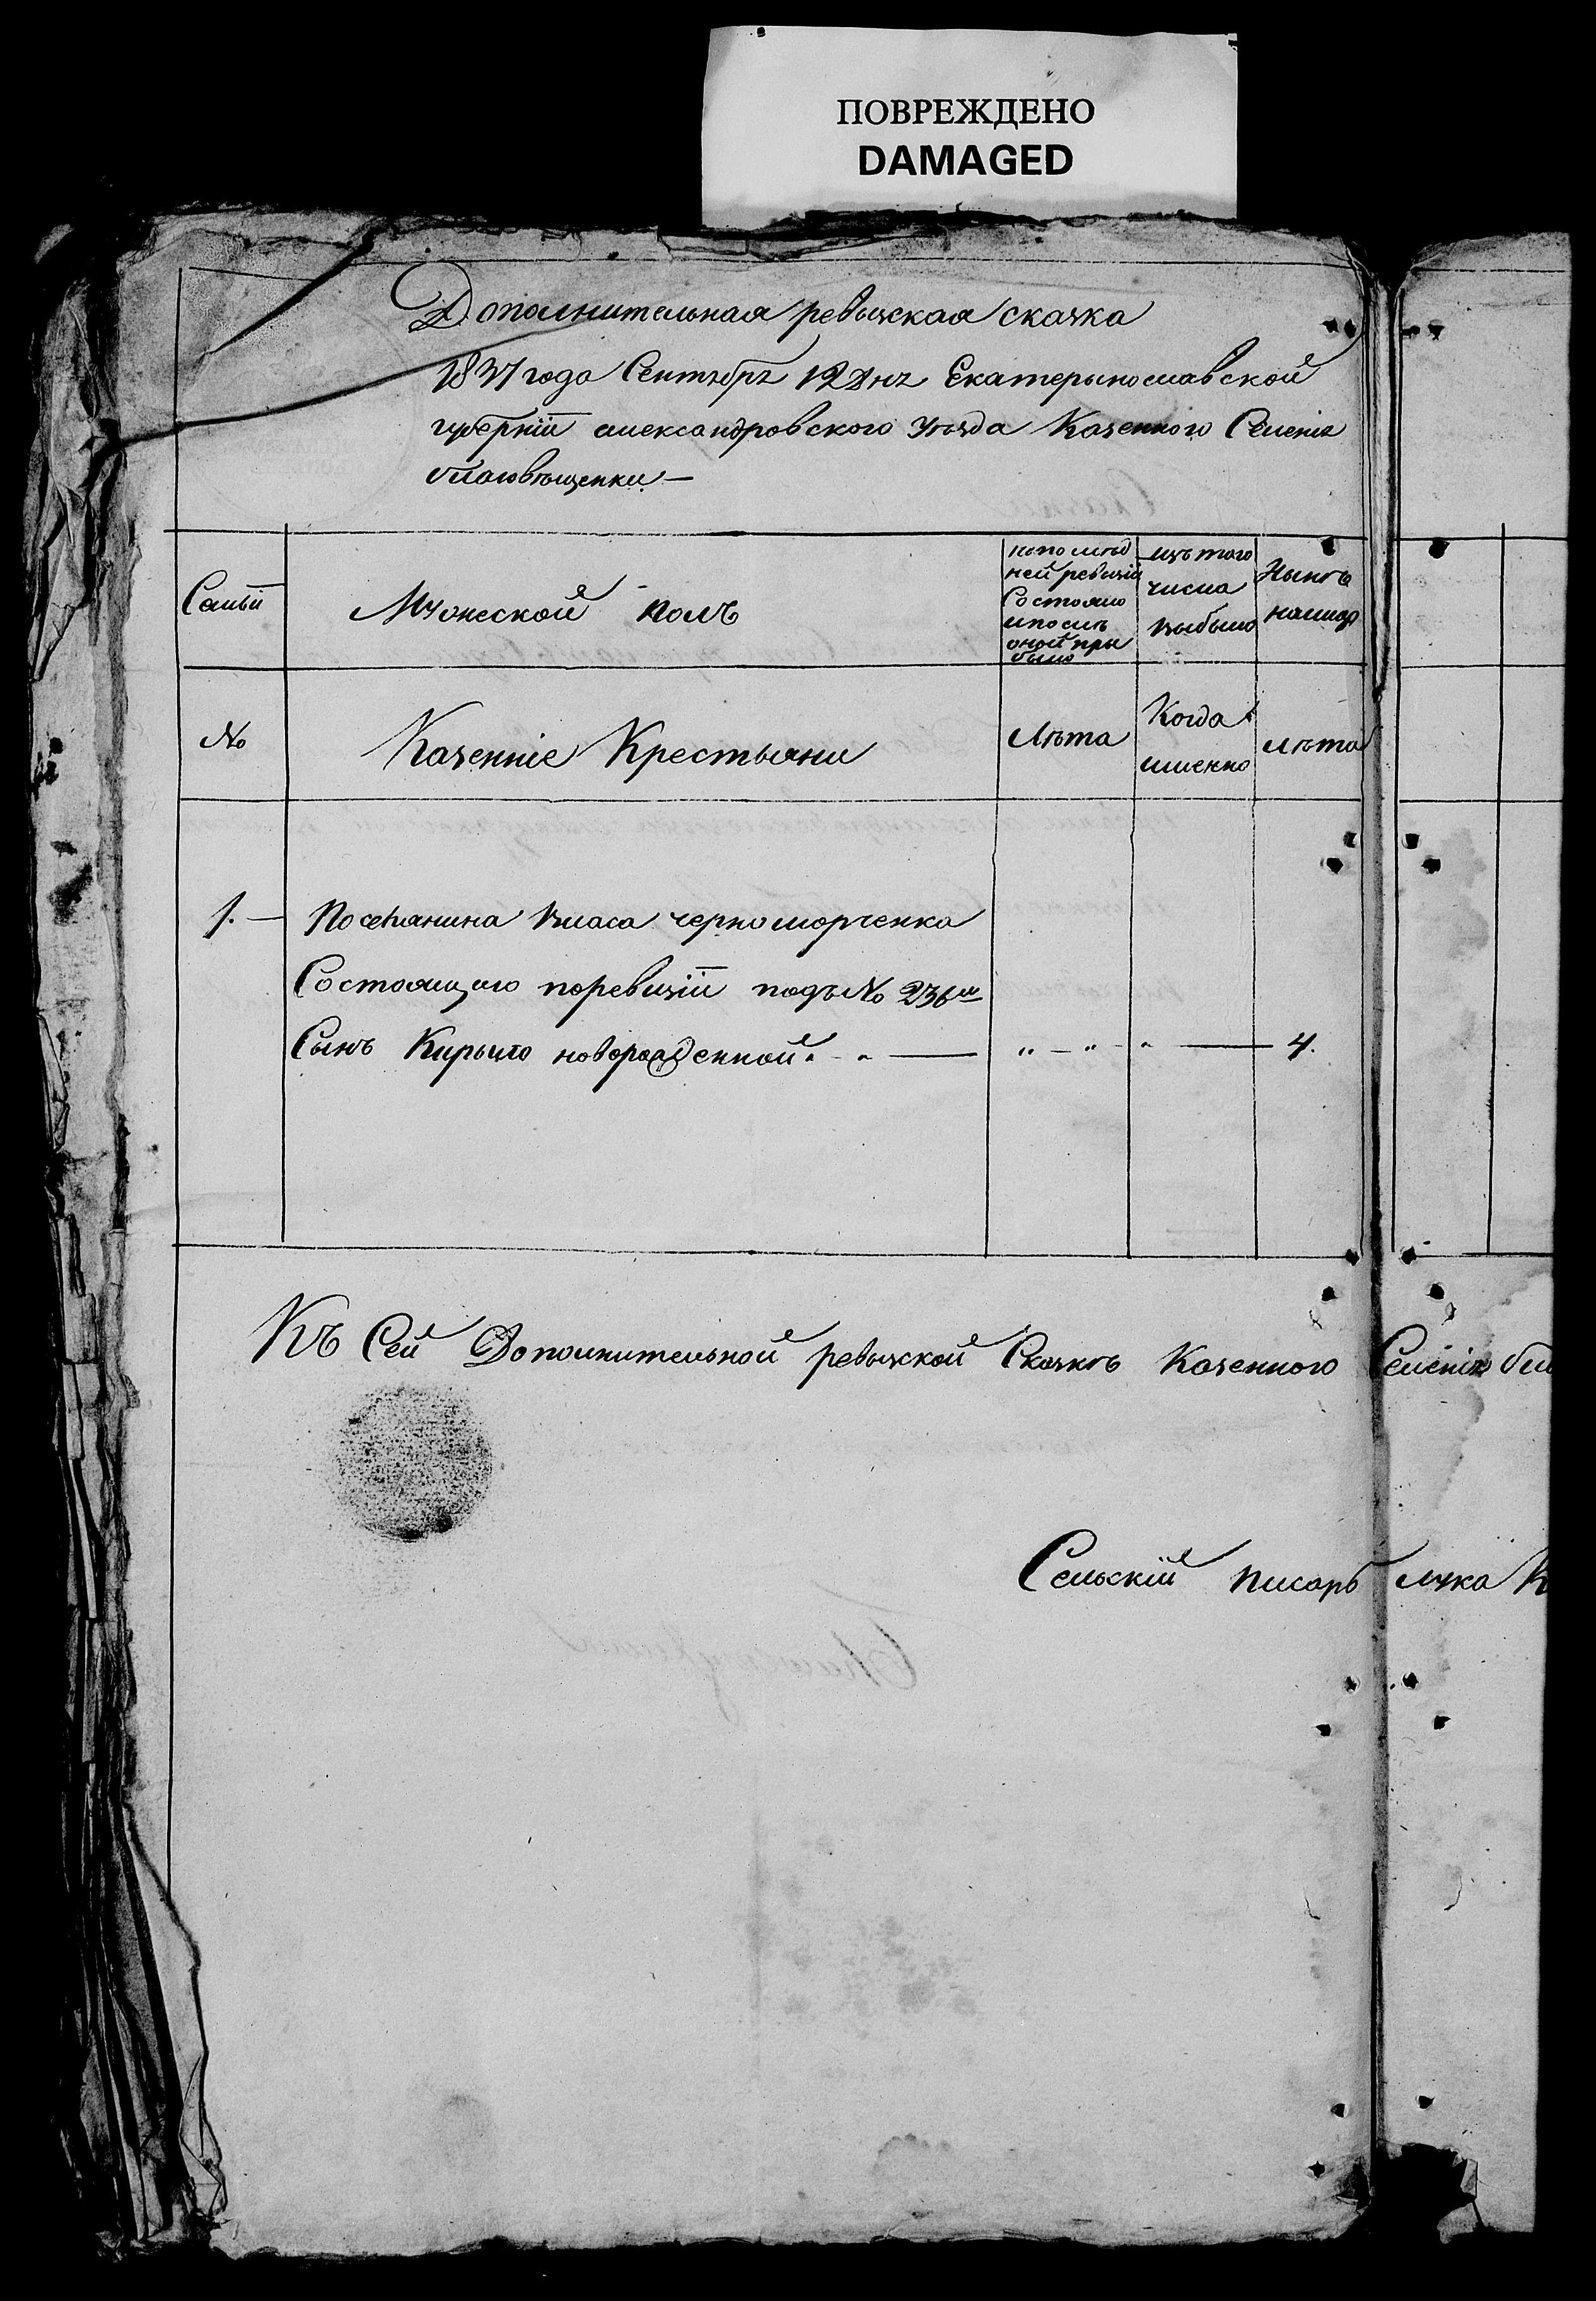 ПОВРЕЖДЕНО
DAMAGED
Дополнительная ревызская сказка
1837 года Сентября 12 дня Екатерынославской
губерніи александровского уѣзда Казенного Селенія
благовѣщенки —
Семьи
Мужеской полъ
по послѣд
ней ревизіи
Состояло
и послѣ
оной при
было
изъ того
числа
выбыло
Нынѣ
на лицо
№
Казенніе Крестьяни
Лѣта
Когда
именно
лѣта
1. — Поселянина Власа черноморченка
Состоящего по ревизіи подъ № 236м
Сынъ Кирыло новорожденной „ — „ — „ — 4.
Къ Сей Дополнительной ревызской Сказкѣ Казенного Селенія бла
Сельскій писарь лука К